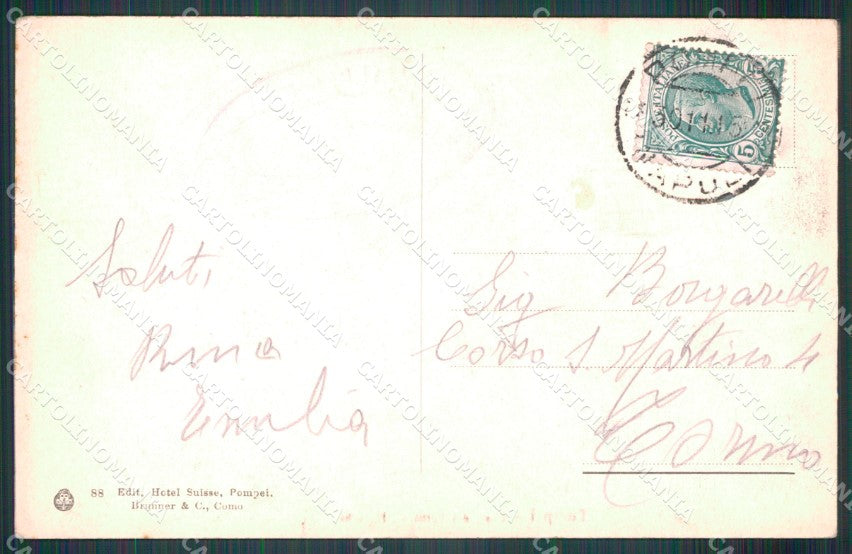 Saluti
Rina
Emilia
Sig Borgarelli
Corso S Martino 4
Torino
88 Edit. Hotel Suisse, Pompei.
Brunner & C., Como
POSTE ITALIANE
CENTESIMI 5
NAPOLI
CARTOLINOMANIA